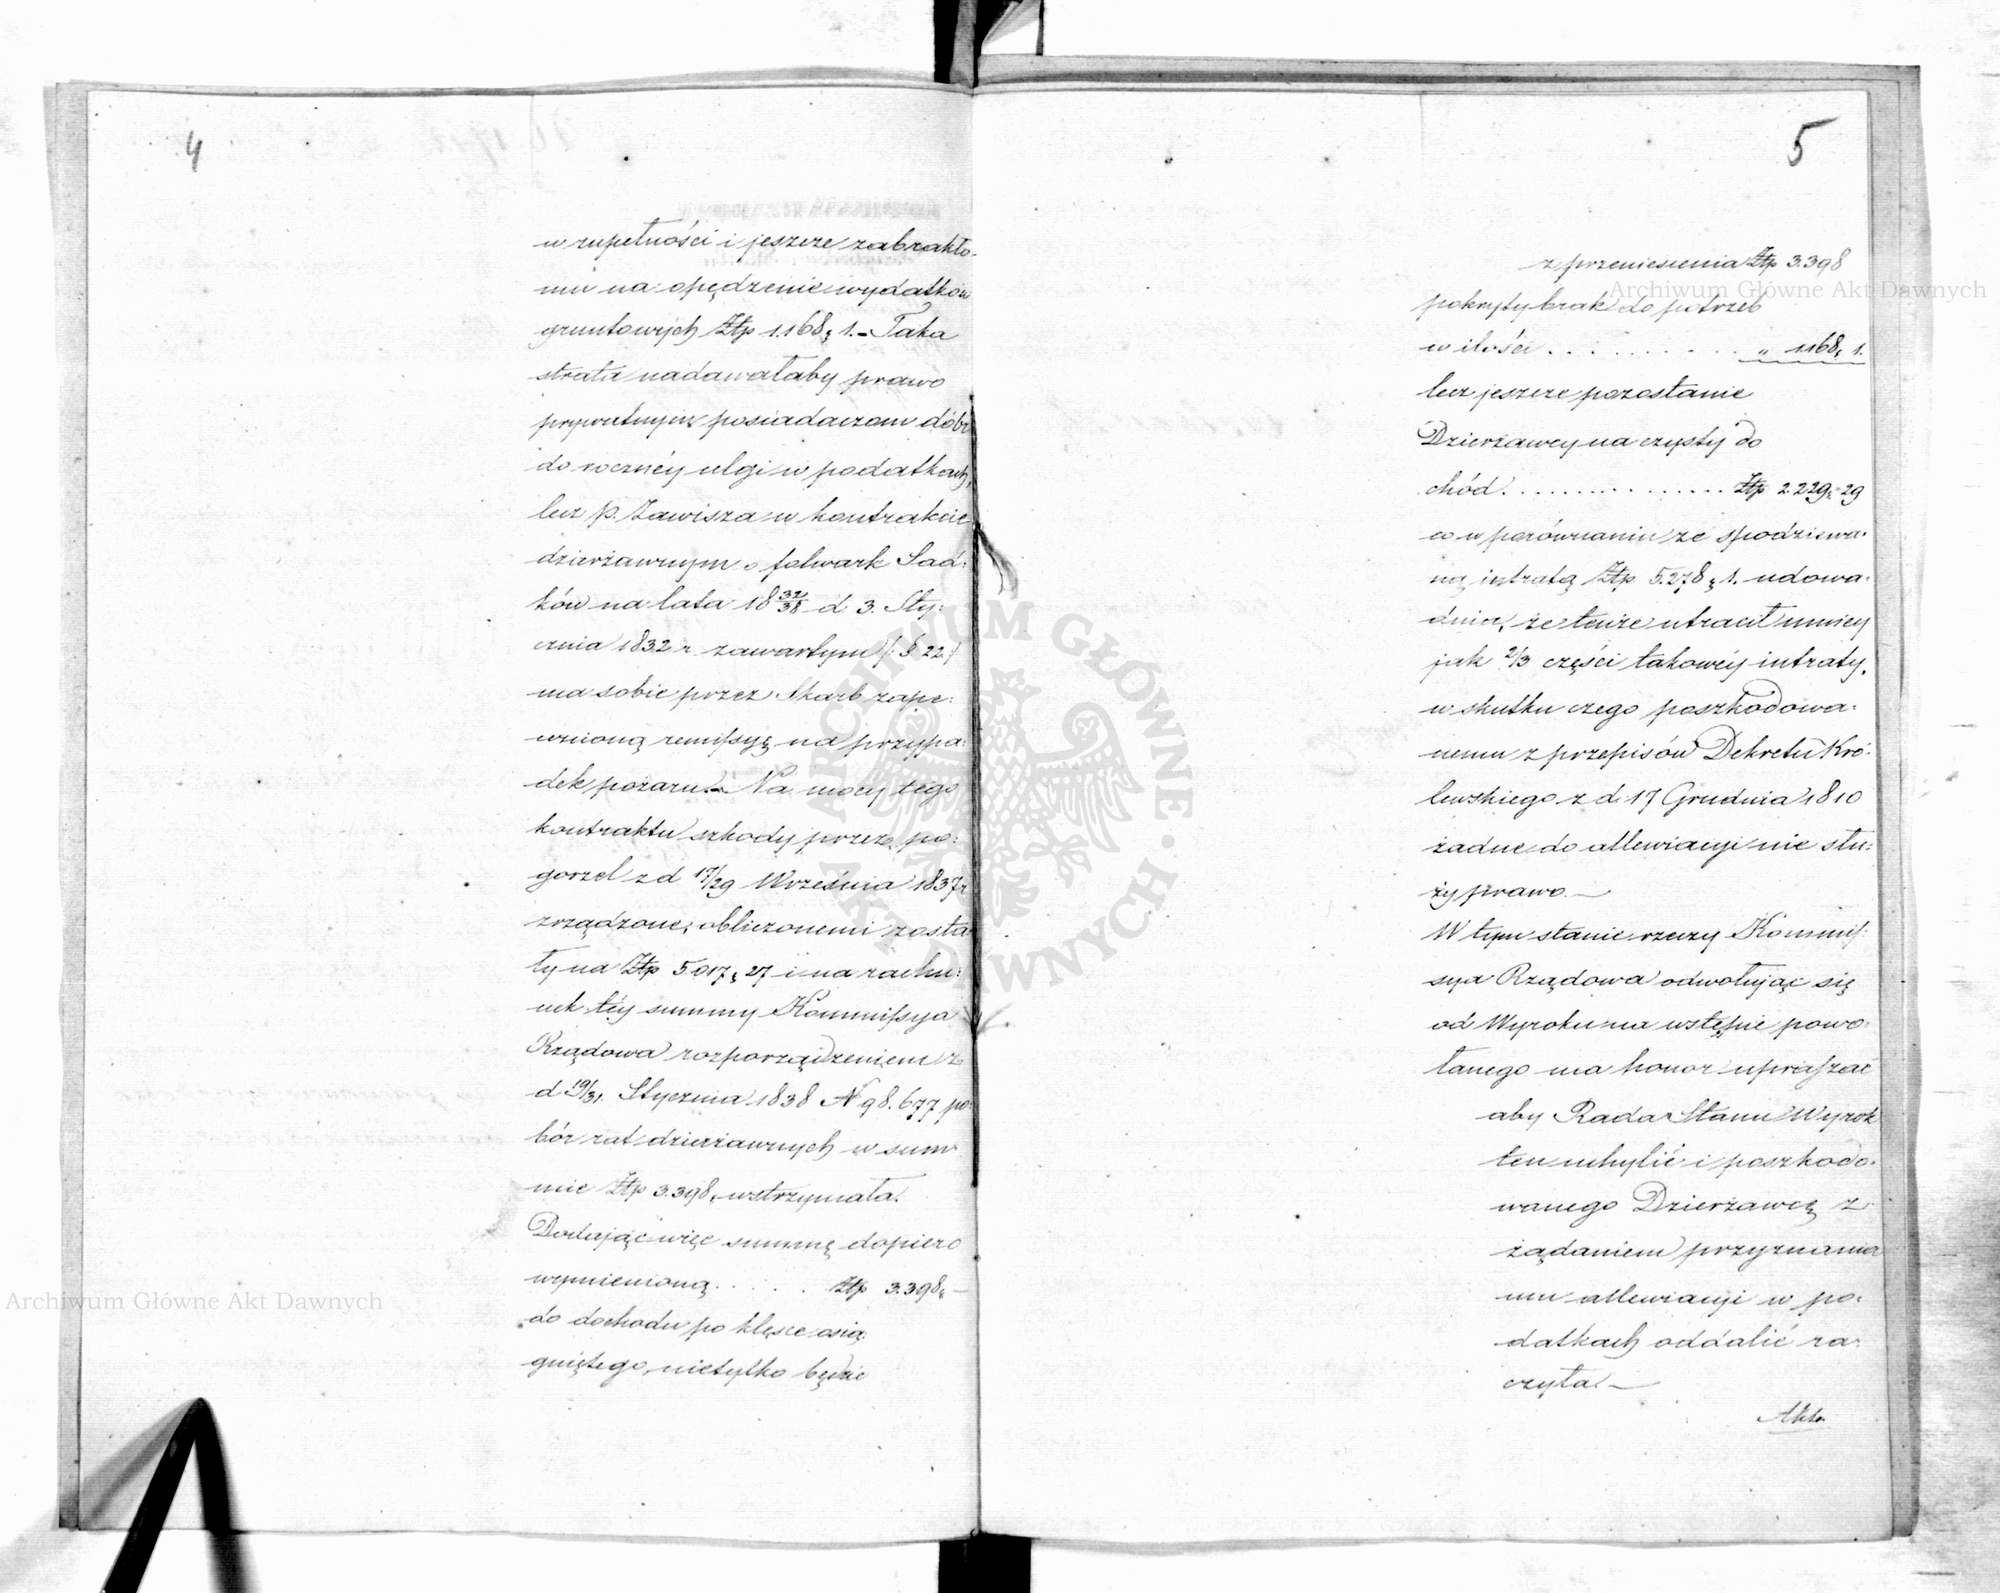 4
w zupełności i jeszcze zabrakło
mu na opędzenie wydatków
gruntowych Złp 1.168, 1. – Taka
strata nadawałaby prawo
prywatnym posiadaczom dóbr
do rocznéy ulgi w podatkach,
lecz p. Zawisza w kontrakcie
dzierżawnym o folwark Sad:
ków na lata 18 32/38 d 3. Sty:
cznia 1832 r. zawartym /: § 22 :/
ma sobie przez Skarb zape:
wnioną remissyę na przypa:
dek pożaru. – Na mocy tego
kontraktu szkody przez po:
gorzel z d 17/29 Września 1837 r
zrządzone, obliczonemi zosta
ły na Złp 5.017, 27 i na rachu:
nek téy summy Kommissya
Rządowa rozporządzeniem z
d 19/31. Stycznia 1838 N 98.677 po:
bór rat dzierżawnych w sum
mie Złp 3.398, wstrzymała.
Dodając więc summę dopiero
wymienioną . . . . . Złp 3.398, –
do dochodu po klęsce osią
gniętego, nietylko będzie
5
z przeniesienia Złp 3.398
pokryty brak do potrzeb
w ilości . . . . . . . . . „ 1168, 1.
lecz jeszcze pozostanie
Dzierżawcy na czysty do
chód . . . . . . . . . . . . . . Złp 2.229, 29
co w porównaniu ze spodziewa:
ną intratą Złp 5.278, 1. udowa:
dnia, że tenże utracił mniéy
jak 2/3 części takowéy intraty,
w skutku czego poszkodowa:
nemu z przepisów Dekretu Kró:
lewskiego z d. 17 Grudnia 1810
żadne do allewiacyi nie słu:
ży prawo. –
W tym stanie rzeczy Kommis:
sya Rządowa odwołując się
od Wyroku na wstępie powo:
łanego ma honor upraszać
aby Rada Stanu Wyrok
ten uchylić i poszkodo:
wanego Dzierżawcę z
żądaniem przyznania
mu allewiacyi w po:
datkach oddalić ra:
czyła. –
Akta
Archiwum Główne Akt Dawnych
Archiwum Główne Akt Dawnych
ARCHIWUM GŁÓWNE AKT DAWNYCH